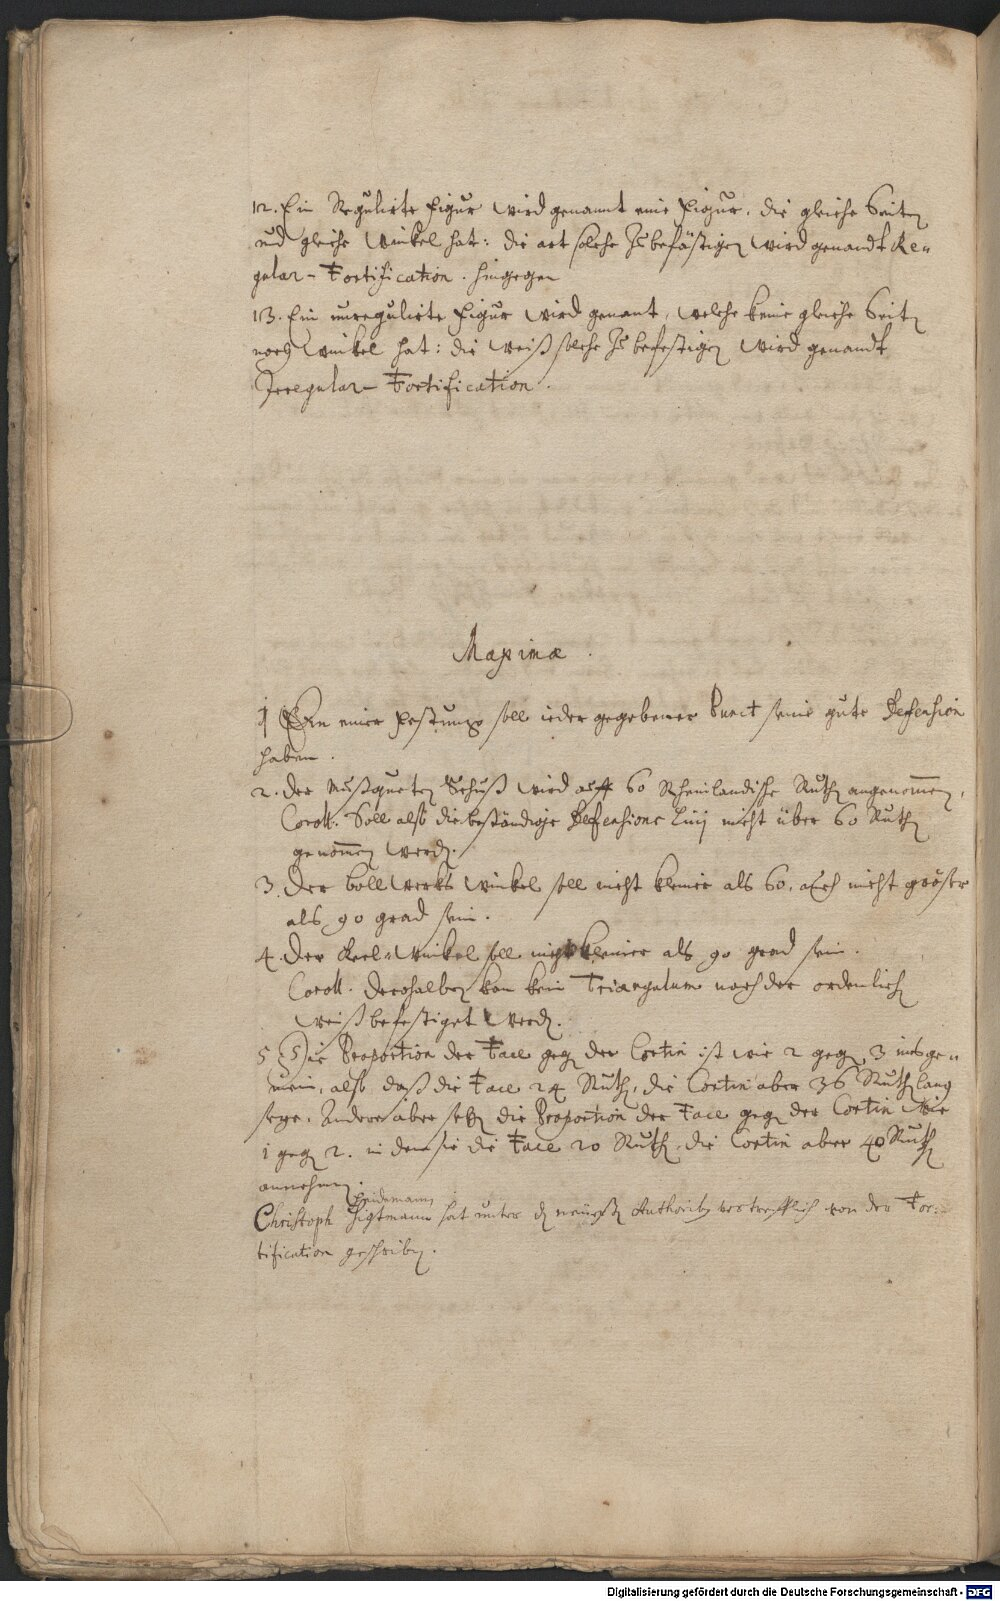 12. Ein Regulirte Figur wird genannt eine Figur, die gleiche Seiten
und gleiche Winkel hat: die art solche zu befästigen wird genandt Re=
gular-Fortification. hingegen
13. Ein unregulirte Figur wird genant, welche keine gleiche Seiten
noch winkel hat: die weiß solche zu befestigen wird genandt
Irregular-Fortification.
Maximæ.
1 In einer Festung soll ieder gegebener Punct seine gute Defension
haben.
2. Der Mußqueten Schuß wird auff 60 Rheinländische Ruthen angenommen,
Coroll. Soll also die beständige Defensions Linij nicht über 60 Ruthen
genommen werden.
3. Der bollwerks winkel soll nicht kleiner als 60, auch nicht größer
als 90 grad sein.
4. Der Keel-Winkel soll nicht kleiner als 90 grad sein.
Coroll. Derohalben kan kein Triangulum nach der ordenlichen
weiß befestiget werden.
5 Die Proportion der Face gegen der Cortin ist wie 2 gegen 3 insge=
mein, also daß die Face 24 Ruthen, die Cortin aber 36 Ruthen lang
seye. Andere aber setzen die Proportion der Face gegen der Cortin wie
1 gegen 2. in dem sie die Face 20 Ruthen, die Cortin aber 40 Ruthen
annehmen.
Heidemann
Christoph hat unter den neuesten vortrefflich von der For=
tification geschriben.
Digitalisierung gefördert durch die Deutsche Forschungsgemeinschaft - DFG